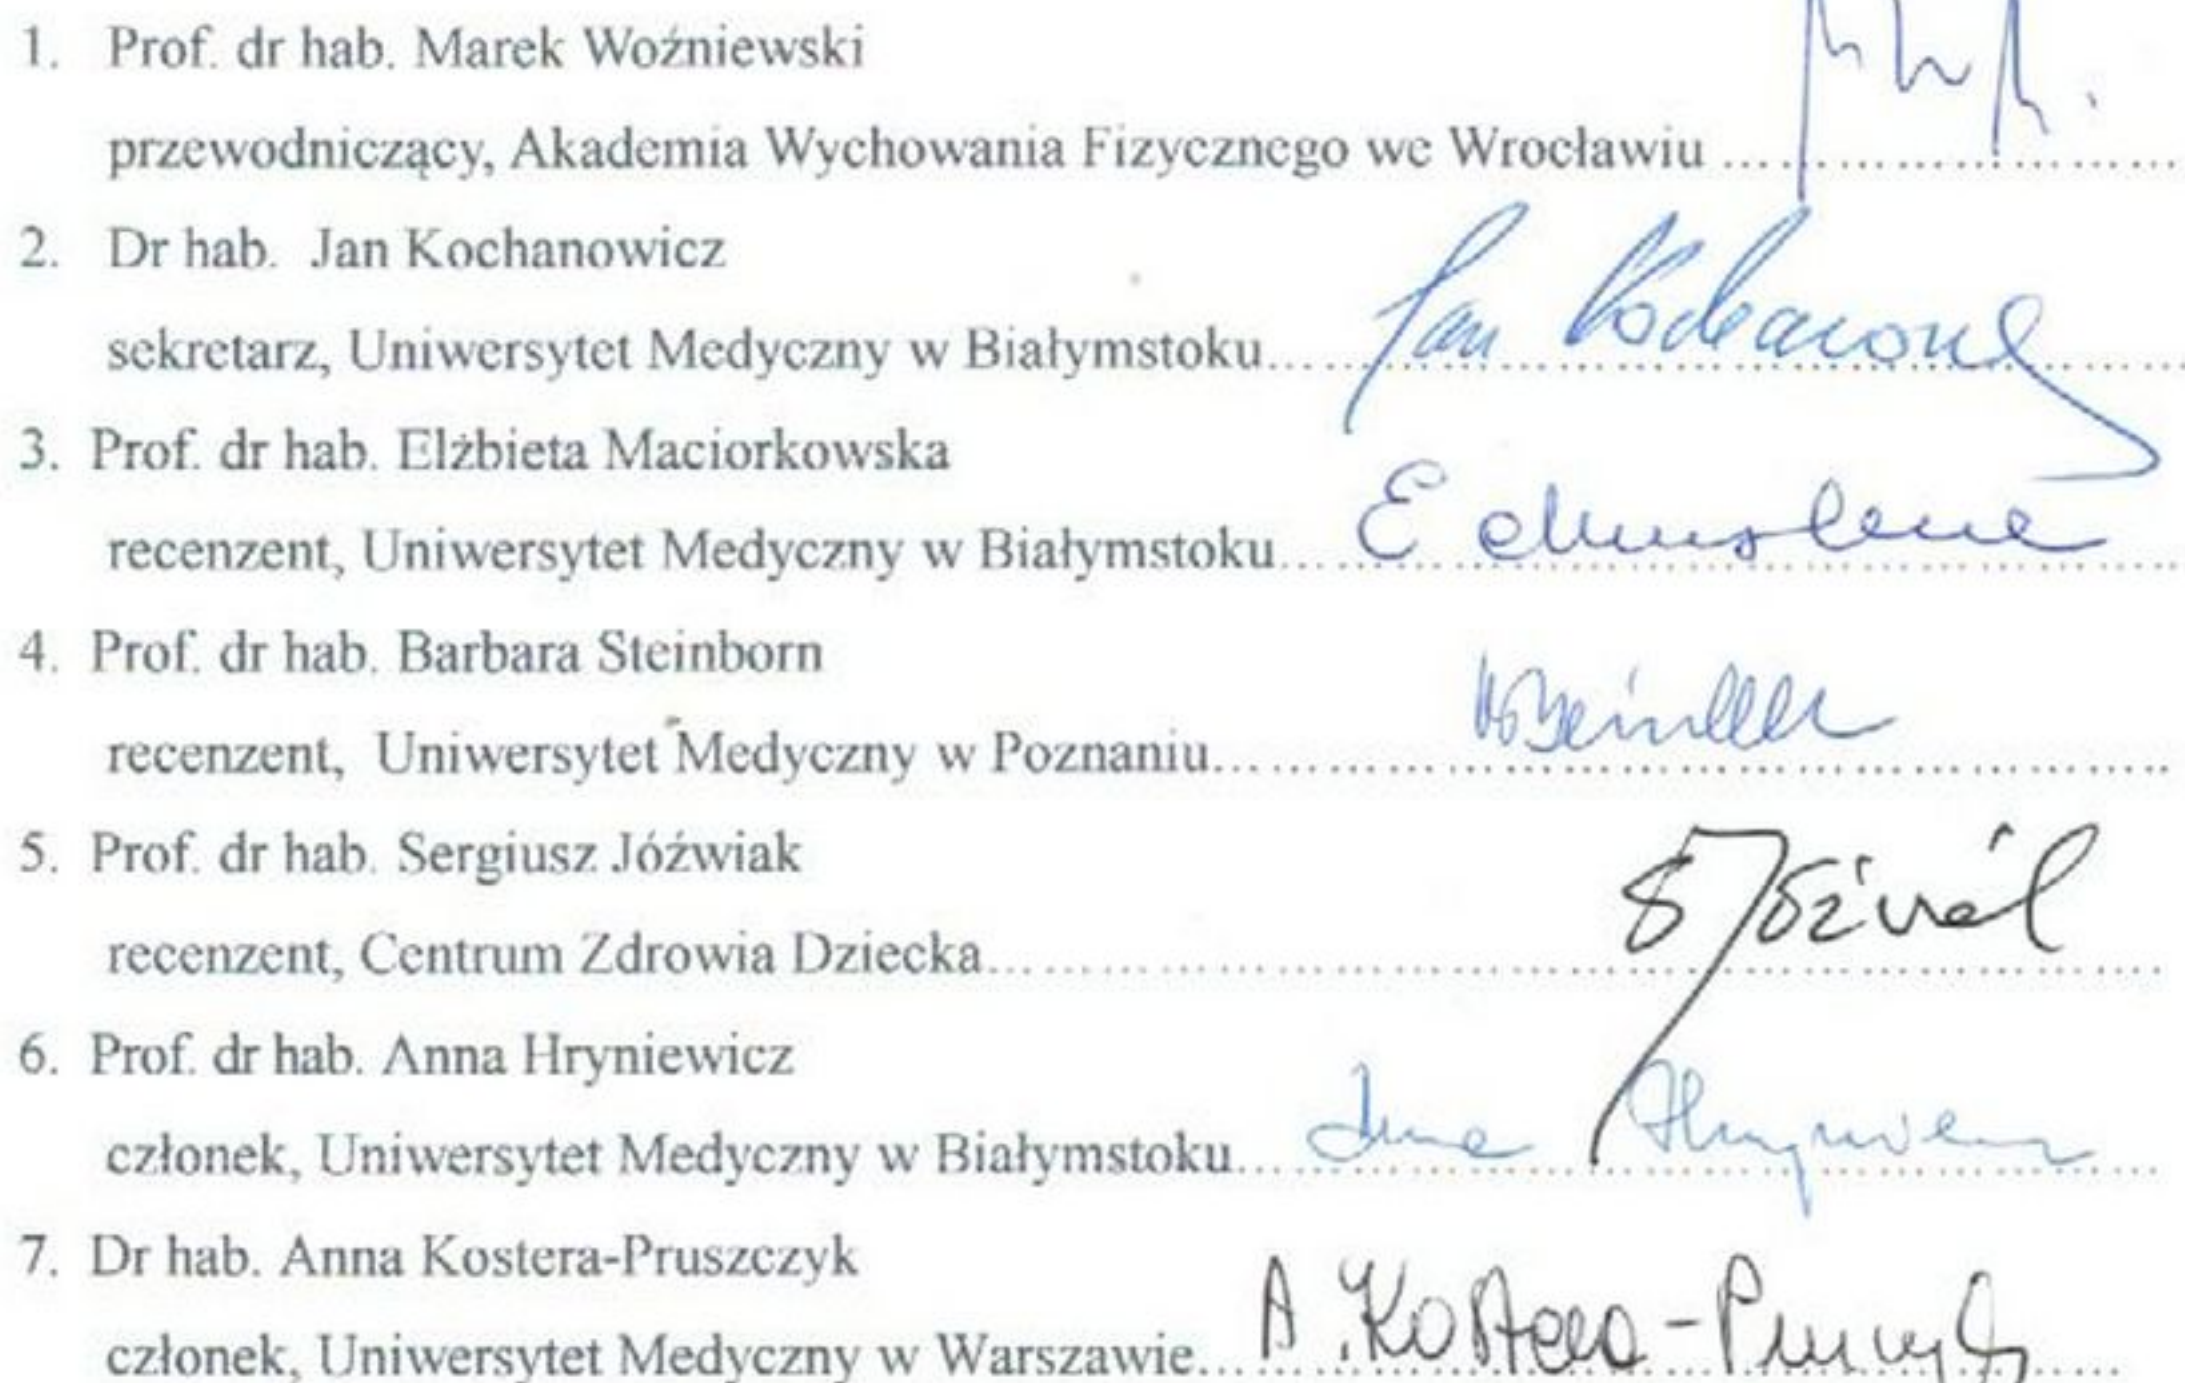 1. Prof. dr hab. Marek Woźniewski
przewodniczący, Akademia Wychowania Fizycznego we Wrocławiu ........................
2. Dr hab. Jan Kochanowicz
sekretarz, Uniwersytet Medyczny w Białymstoku.... Jan
3. Prof. dr hab. Elżbieta Maciorkowska
recenzent, Uniwersytet Medyczny w Białymstoku.... E
4. Prof. dr hab. Barbara Steinborn
recenzent, Uniwersytet Medyczny w Poznaniu........................
5. Prof. dr hab. Sergiusz Jóźwiak
recenzent, Centrum Zdrowia Dziecka........................ S Jóźwiak
6. Prof. dr hab. Anna Hryniewicz
członek, Uniwersytet Medyczny w Białymstoku....
7. Dr hab. Anna Kostera-Pruszczyk
członek, Uniwersytet Medyczny w Warszawie... A. Kostera-